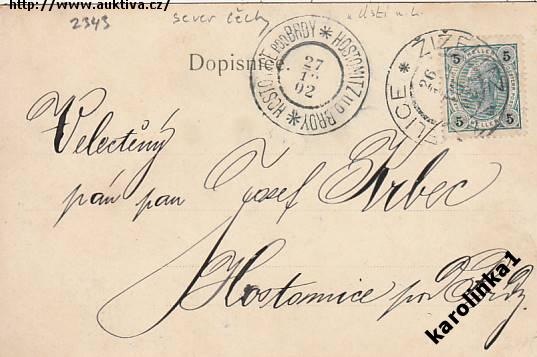 http://www.auktiva.cz/
2343 sever čechy u Ústí n. L.
HOSTOMITZ U/D BRDY * HOSTOMICE POD BRDY *
27
02
ŽIŽELICE *
26
5 5
5 5
HELLER
Dopisnice.
Velectěný
pán pan Josef Krbec
Hostomice pod Brdy
karolinka1